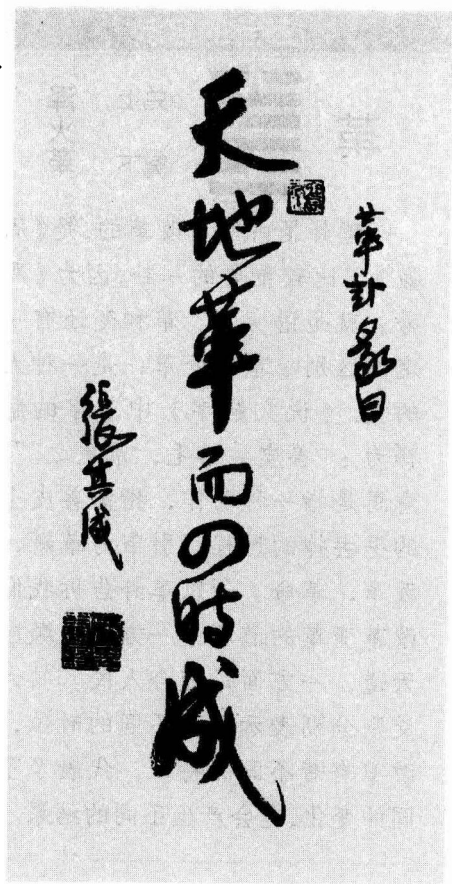 革卦彖曰
天地革而四時成
張其成